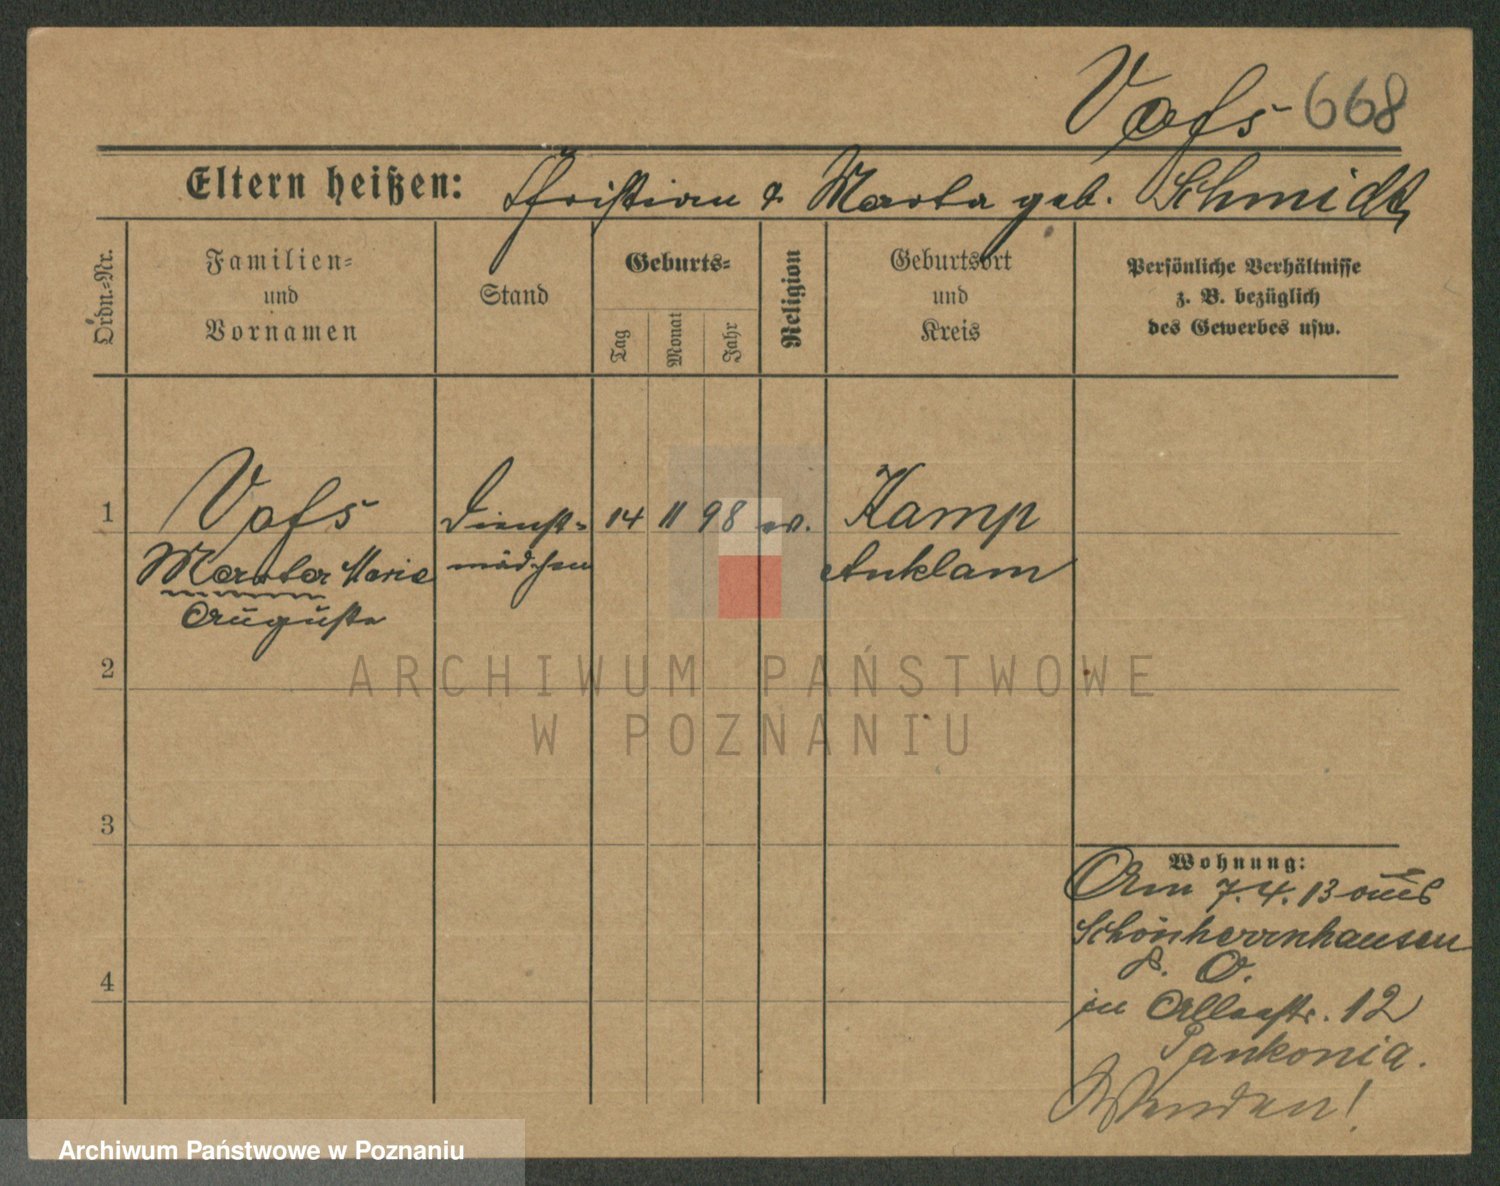 Voß 668
Eltern heißen: Christian & Marta geb. Schmidt
Ordn.-Nr.
Familien-
und
Vornamen
Stand
Geburts-
Tag
Monat
Jahr
Religion
Geburtsort
und
Kreis
Persönliche Verhältnisse
z. B. bezüglich
des Gewerbes usw.
1 Voß Dienst- 14 11 98 ev. Kamp
Marta Marie mädchen Anklam
Auguste
2
ARCHIWUM PAŃSTWOWE
W POZNANIU
3
Wohnung:
Am 7.4.13 aus
Schönherrnhausen
P. O.
in 12
Pankonia.
Wenden!
4
Archiwum Państwowe w Poznaniu